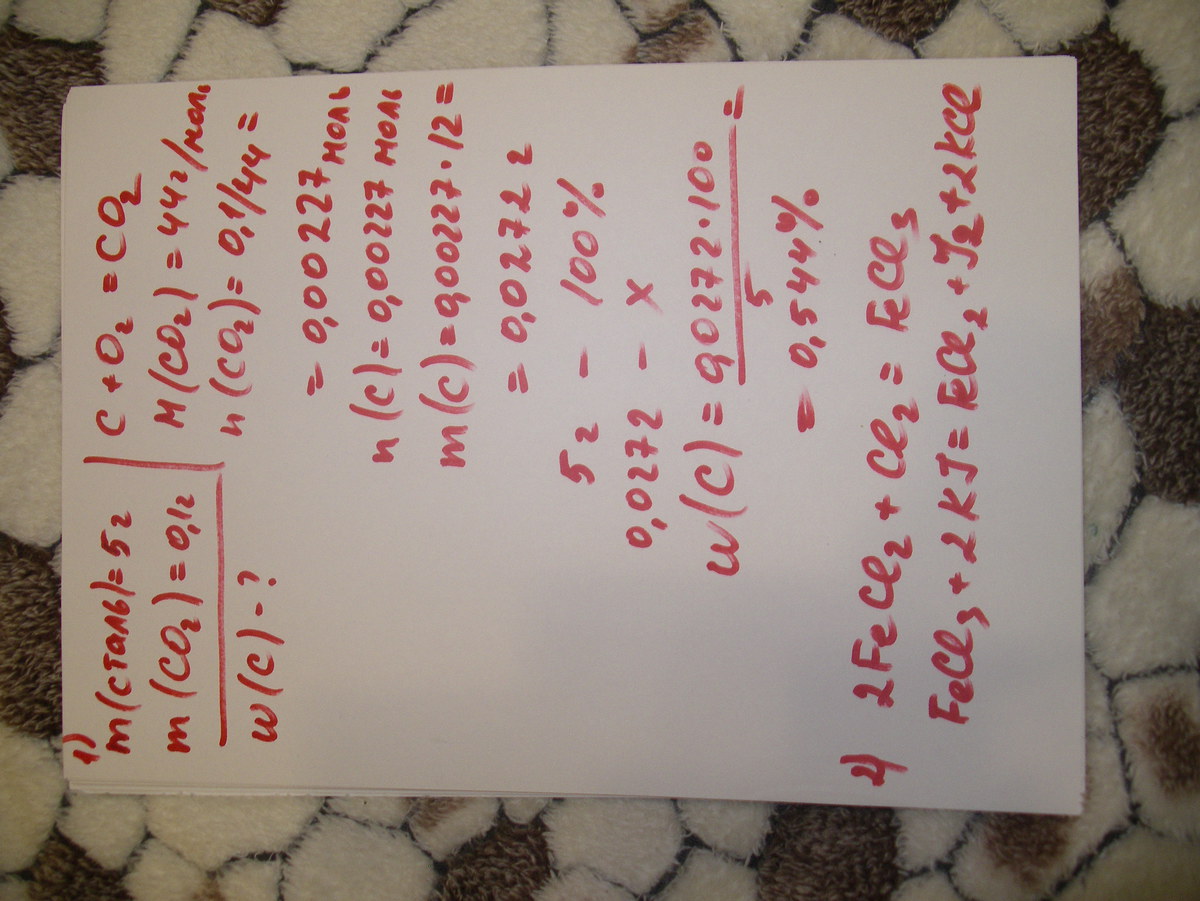 1)
m(сталь)=5г
m(CO2)=0,1г
w(C)-?
C+O2=CO2
M(CO2)=44г/моль
n(CO2)=0,1/44=
=0,00227моль
n(C)=0,00227моль
m(C)=0,00227·12=
=0,0272г
5г - 100%
0,0272 - x
w(C)=0,0272·100/5=
=0,544%
2) 2FeCl2+Cl2=FeCl3
FeCl3+2KJ=FeCl2+J2+2KCl